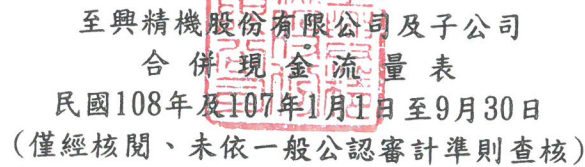 至興精機股份有限公司及子公司
合併現金流量表
民國108年及107年1月1日至9月30日
(僅經核閱、未依一般公認審計準則查核)